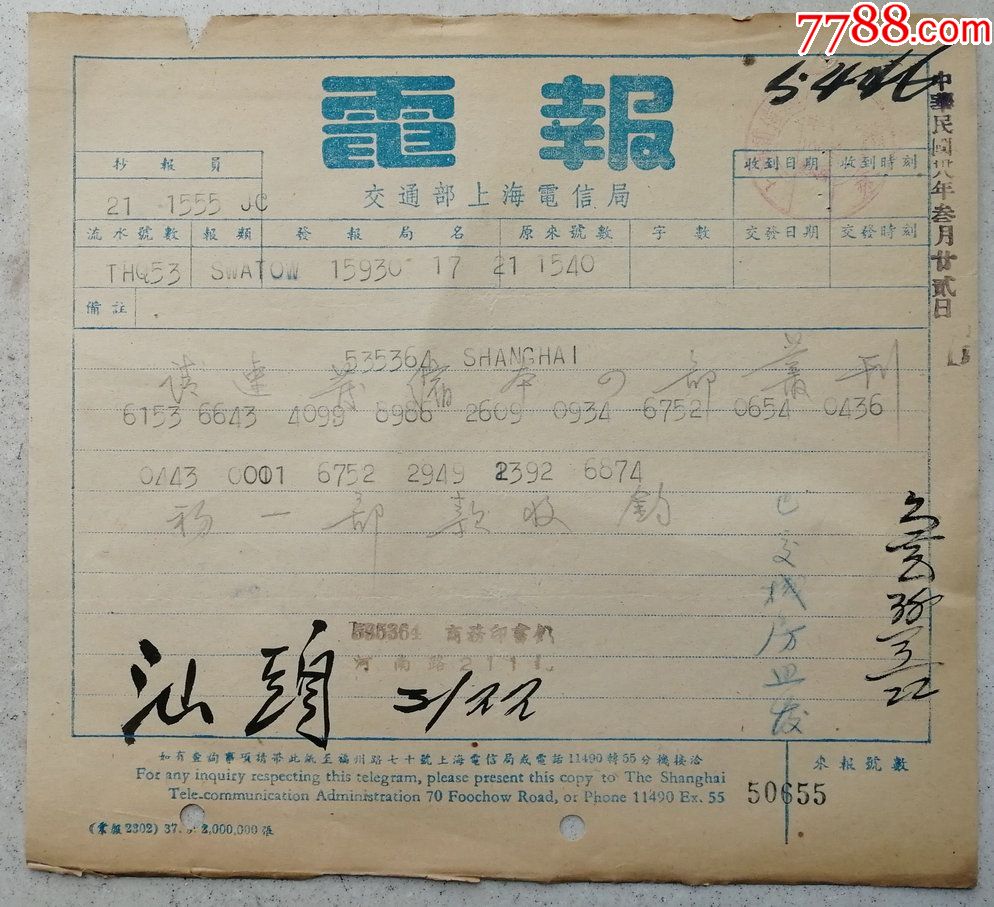 7788.com
5.4
中華民國卅八年叁月廿貳日
電報
交通部上海電信局
抄報員
收到日期 收到時刻
21 1555 JC
流水號數 報類 發報局名 原來號數 字數 交發日期 交發時刻
THQ53 SWATOW 15930 17 21 1540
備註
535364 SHANGHAI
請速 備本 部叢刊
6153 6643 4099 8986 2609 0934 6752 0654 0436
0443 0001 6752 2949 2392 6874
初一部款收鈞
已交機房
535364 商務印書館
河南路211
汕頭
3/22
如有查詢事項携帶此紙至福州路七十號上海電信局或電話11490轉55分機接洽
For any inquiry respecting this telegram, please present this copy to The Shanghai
Tele-communication Administration 70 Foochow Road, or Phone 11490 Ex. 55
來報號數
50655
(業報2302) 37. 2,000,000張